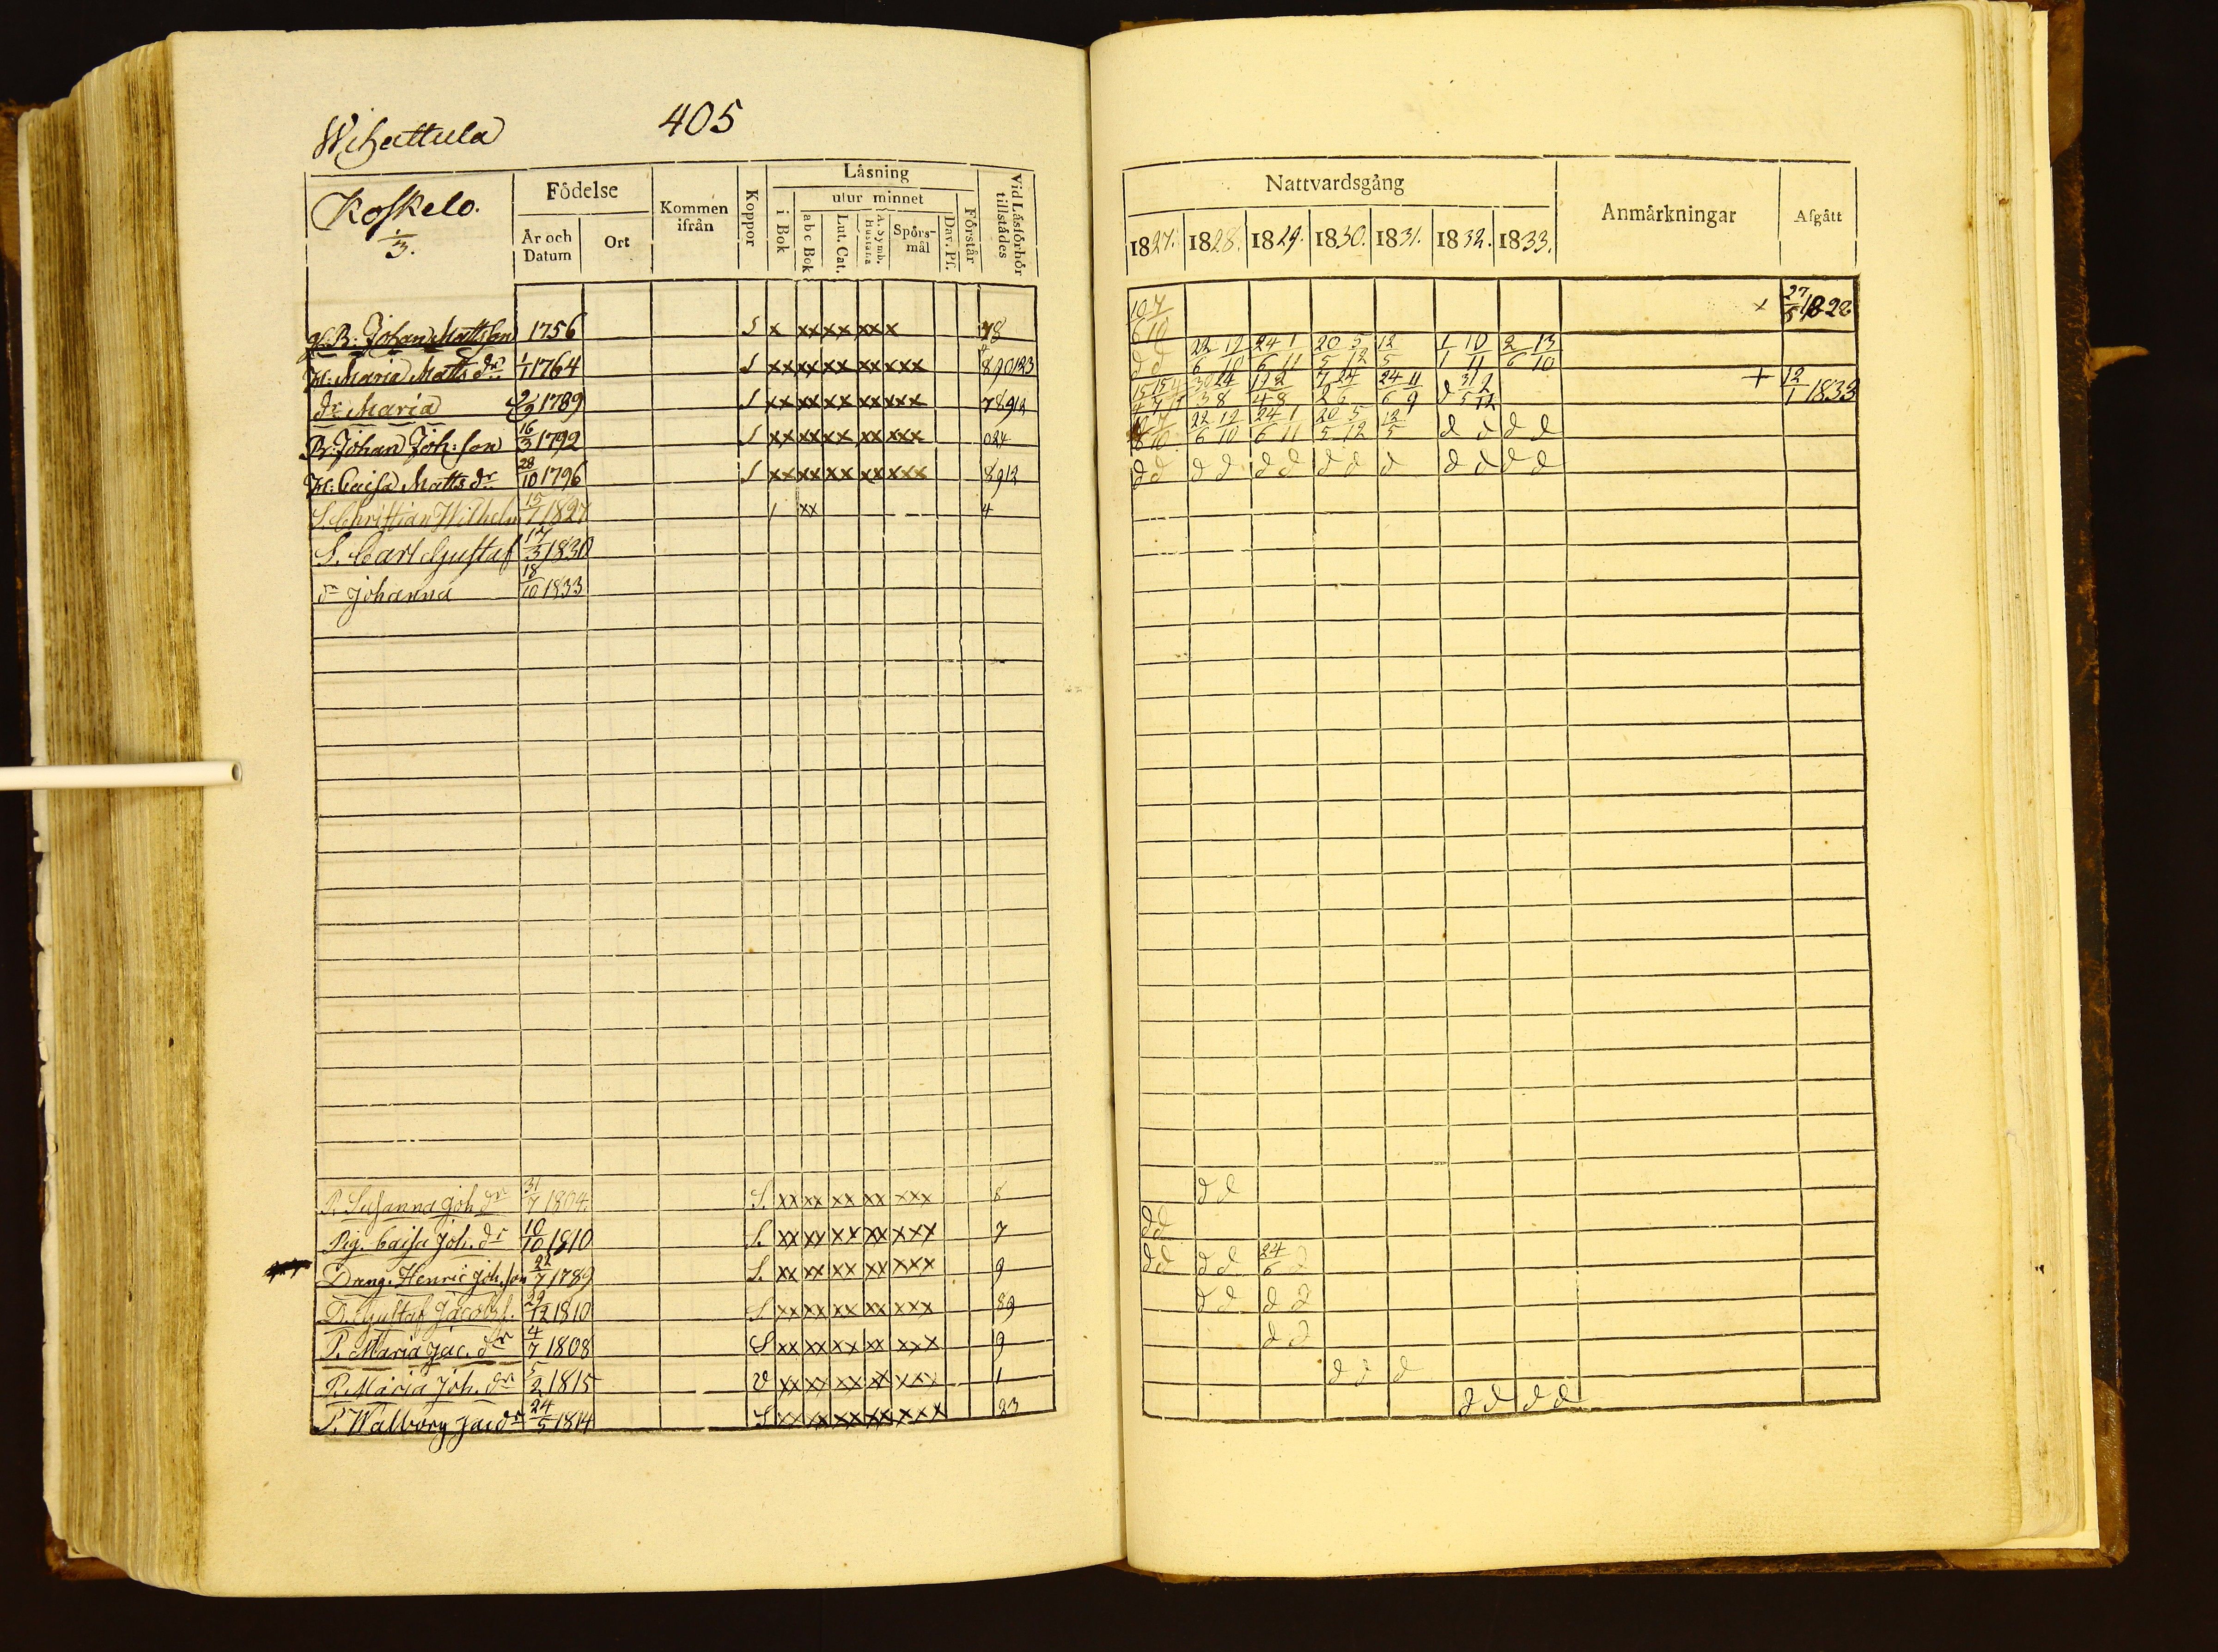 Wihattula
405
Koskelo.
1/3.
Födelse
År och Datum
Ort
Kommen ifrån
Koppor
Läsning
i Bok
utur minnet
a b c Bok
Lut. Cat.
A. Symb. Hustafla
Spörs-mål
Dav. Ps.
Förstår
Vid Läsförhör tillstädes
Johan Mattsson 1756 S x xx xx xx x 78
H: Maria Matts dr 1/1 1764 S xx xx xx xx xxx 890123
dr Maria 2/2 1789 S xx xx xx xx xxx 78912
B: Johan Joh: son 16/3 1792 S xx xx xx xx xxx 024
H: Caisa Matts dr 28/10 1796 S xx xx xx xx xxx 8912
S. Christian Wilhelm 15/7 1827 / xx 4
S. Carl Gustaf 17/3 1830
dr Johanna 18/10 1833
P. Susanna Joh dr 31/7 1804 S. xx xx xx xx xxx 8
Pig. Caisa Joh. dr 10/10 1810 S. xx xx xx xx xxx 7
Dräng. Henric Joh. son 22/7 1789 S. xx xx xx xx xxx 9
D. Gustaf Jacobs s. 29/12 1810 S. xx xx xx xx xxx 89
P. Maria Jac. dr 4/7 1808 S xx xx xx xx xxx 9
P. Maria Joh. dr 5/2 1815 V xx xx xx xx xxx 1
P. Walborg Jac dr 24/5 1814 S xx xx xx xx xxx 23
Nattvardsgång
1827. 1828. 1829. 1830. 1831. 1832. 1833.
Anmärkningar
Afgått
10/6 7/10 + 27/5 1828
d d 22/6 12/10 24/6 1/11 20/5 5/12 12/5 1/1 10/11 2/6 13/10
+ 12/1 1833
22/6 12/10 24/6 1/11 20/5 5/12 12/5 d d d d
d d d d d d d d d d d d d
d d
d d
d d d d 24/6 d
d d d d
d d
d d d
d d d d